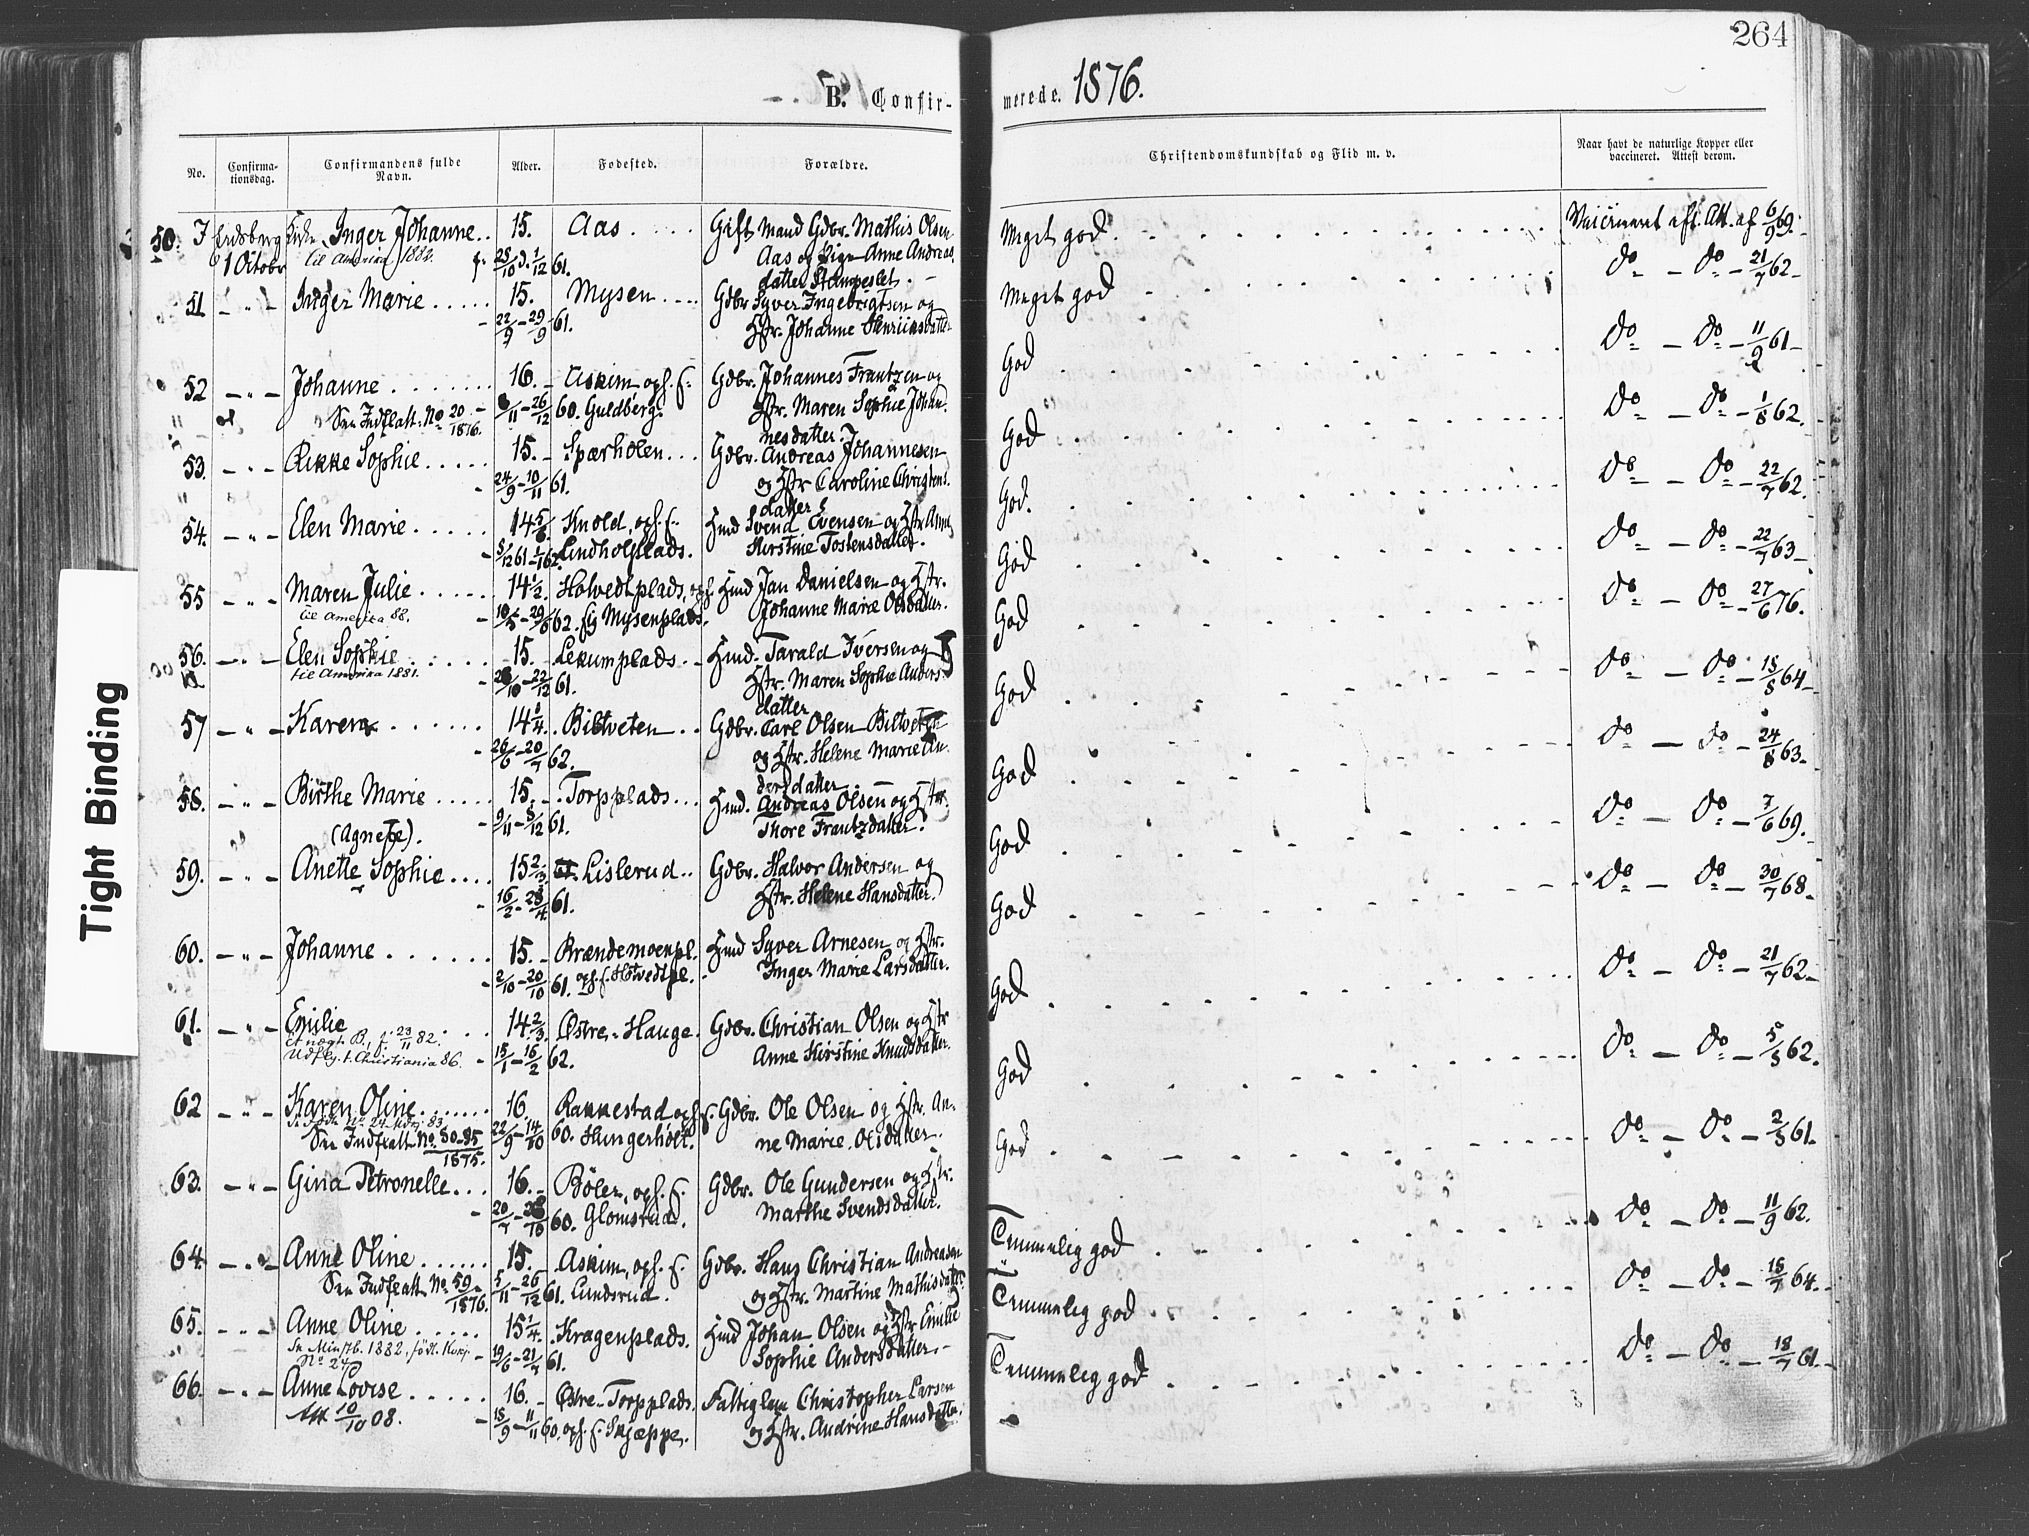 264
B. Confir-
merede. 1876.
No.
Confirma-
tionsdag.
Confirmandens fulde
Navn.
Alder.
Fødested.
Forældre.
Christendomskundskab og Flid m. v.
Naar havt de naturlige Kopper eller
vaccineret. Attest derom.
50. I Eidsberg Kirke Inger Johanne. 15. Aas Gift Mand Gdbr. Mathis Olsen
1 Octobr til Amerika 1884. f. 25/10 d. 1/12 61. Aas og Pige Anne Andreas
datter
51 Inger Marie 15. Mysen Gdbr Syver Ingebrigtsen og
22/9 - 29/9 61. Hstr. Johanne
52 Johanne 16. Askim oph. f. Gdbr. Johannes Frantzen og
Se Indflatt. No 20/1876. /11 - 26/12 60. Guldberg. Hstr. Maren Sophie Johan
nesdatter.
53. Rikke Sophie 15. Spærholen Gdbr. Andreas Johannesen
24/9 - 10/11 61. og Hstr Caroline
datter
54. Elen Marie 14 5/6 Knold, oph. f. Hmd Svend Evensen og Hstr Anne
5/12 61 - 1/1 62. Lindholplads. Kirstine Tostensdatter.
55 Maren Julie 14 1/2. Holvedtplads, oph Hmd Jan Danielsen og Hstr.
til Amerika 88. 62. Mysenplads. Johanne Marie Olsdatter.
56. Elen Sophie 15. Lekumplads Hmd. Tarald Iversen og
til Amerika 1881. /10 - 22/12 61. Hstr. Maren Sophie Anders
datter
57 Karen 14 1/4. Biltveten Gdbr. Carl Olsen Biltveten
26/6 - 20/7 62. og Hstr. Helene Marie An
dersdatter
58. Birthe Marie 15. Torpplads Hmd. Andreas Olsen og Hstr.
(Agnete). 9/11 - 8/12 61. Thore Frantzdatter.
59. Anette Sophie 15 2/3. Lislerud Gdbr. Halvor Andersen og
16/2 - 28/4 61. Hstr. Helene Hansdatter.
60. Johanne 15. Brændemoenpl. Hmd Syver Arnesen og Hstr.
2/10 - 20/10 61. oph. f. Holvedtpl. Inger Marie Larsdatter.
61. Emilie 14 2/3. Østre Hauge. Gdbr. Christian Olsen og Hstr
et uægt. B., f. 23/11 82. 15/1 - 16/2 62. Anne Kirstine Knudsdatter.
Udflyt. t. Christiania 86.
62 Karen Oline 16. Rakkestad oph f. Gdbr. Ole Olsen og Hstr. An-
22/9 - 14/10 60. Hungerholt. ne Marie Olsdatter.
Se Indflatt No 80-85/1875.
63. Gina Petronelle 16. Böler, oph. f. Gdbr. Ole Gundersen og Hstr.
20/7 - /10 60. Glomsrud. Marthe Svendsdatter.
64 Anne Oline 15. Askim, oph. f. Gdbr. Hans Christian Andreasen
Se Indflatt No 59/1876. 5/11 - 26/12 61. Lundsrud. og Hstr. Martine Mathisdatter
65. Anne Oline 15 1/4. Kragenplads. Hmd Johan Olsen og Hstr Emilie
19/6 - 21/7 61. Sophie Andersdatter.
No 24
66. Anne Lovise 16. Østre Torpplads. Fattiglem Christopher Larsen
Att 10/10 08. 18/9 - 11/11 60. oph. f. Skjeppe. og Hstr. Andrine Hansdatter.
Meget god Vaccineret eft. Att. af 6/9 69.
Meget god do - do - 21/7 62
God do - do - 11/2 61
God do - do - 1/8 62.
God. do - do - 22/7 62.
God do - do - 22/7 63
God do - do - 27/6 76.
God do - do - 18/8 64
God do - do - 24/8 63
God do - do - 7/6 69.
God do - do - 30/7 68
God do - do - 21/7 62
God do - do - 5/5 62.
God do - do - 2/5 61.
Temmelig god do - do - 11/9 62.
Temmelig god do - do - 18/7 64.
Temmelig god do - do - 18/7 61.
Tight Binding